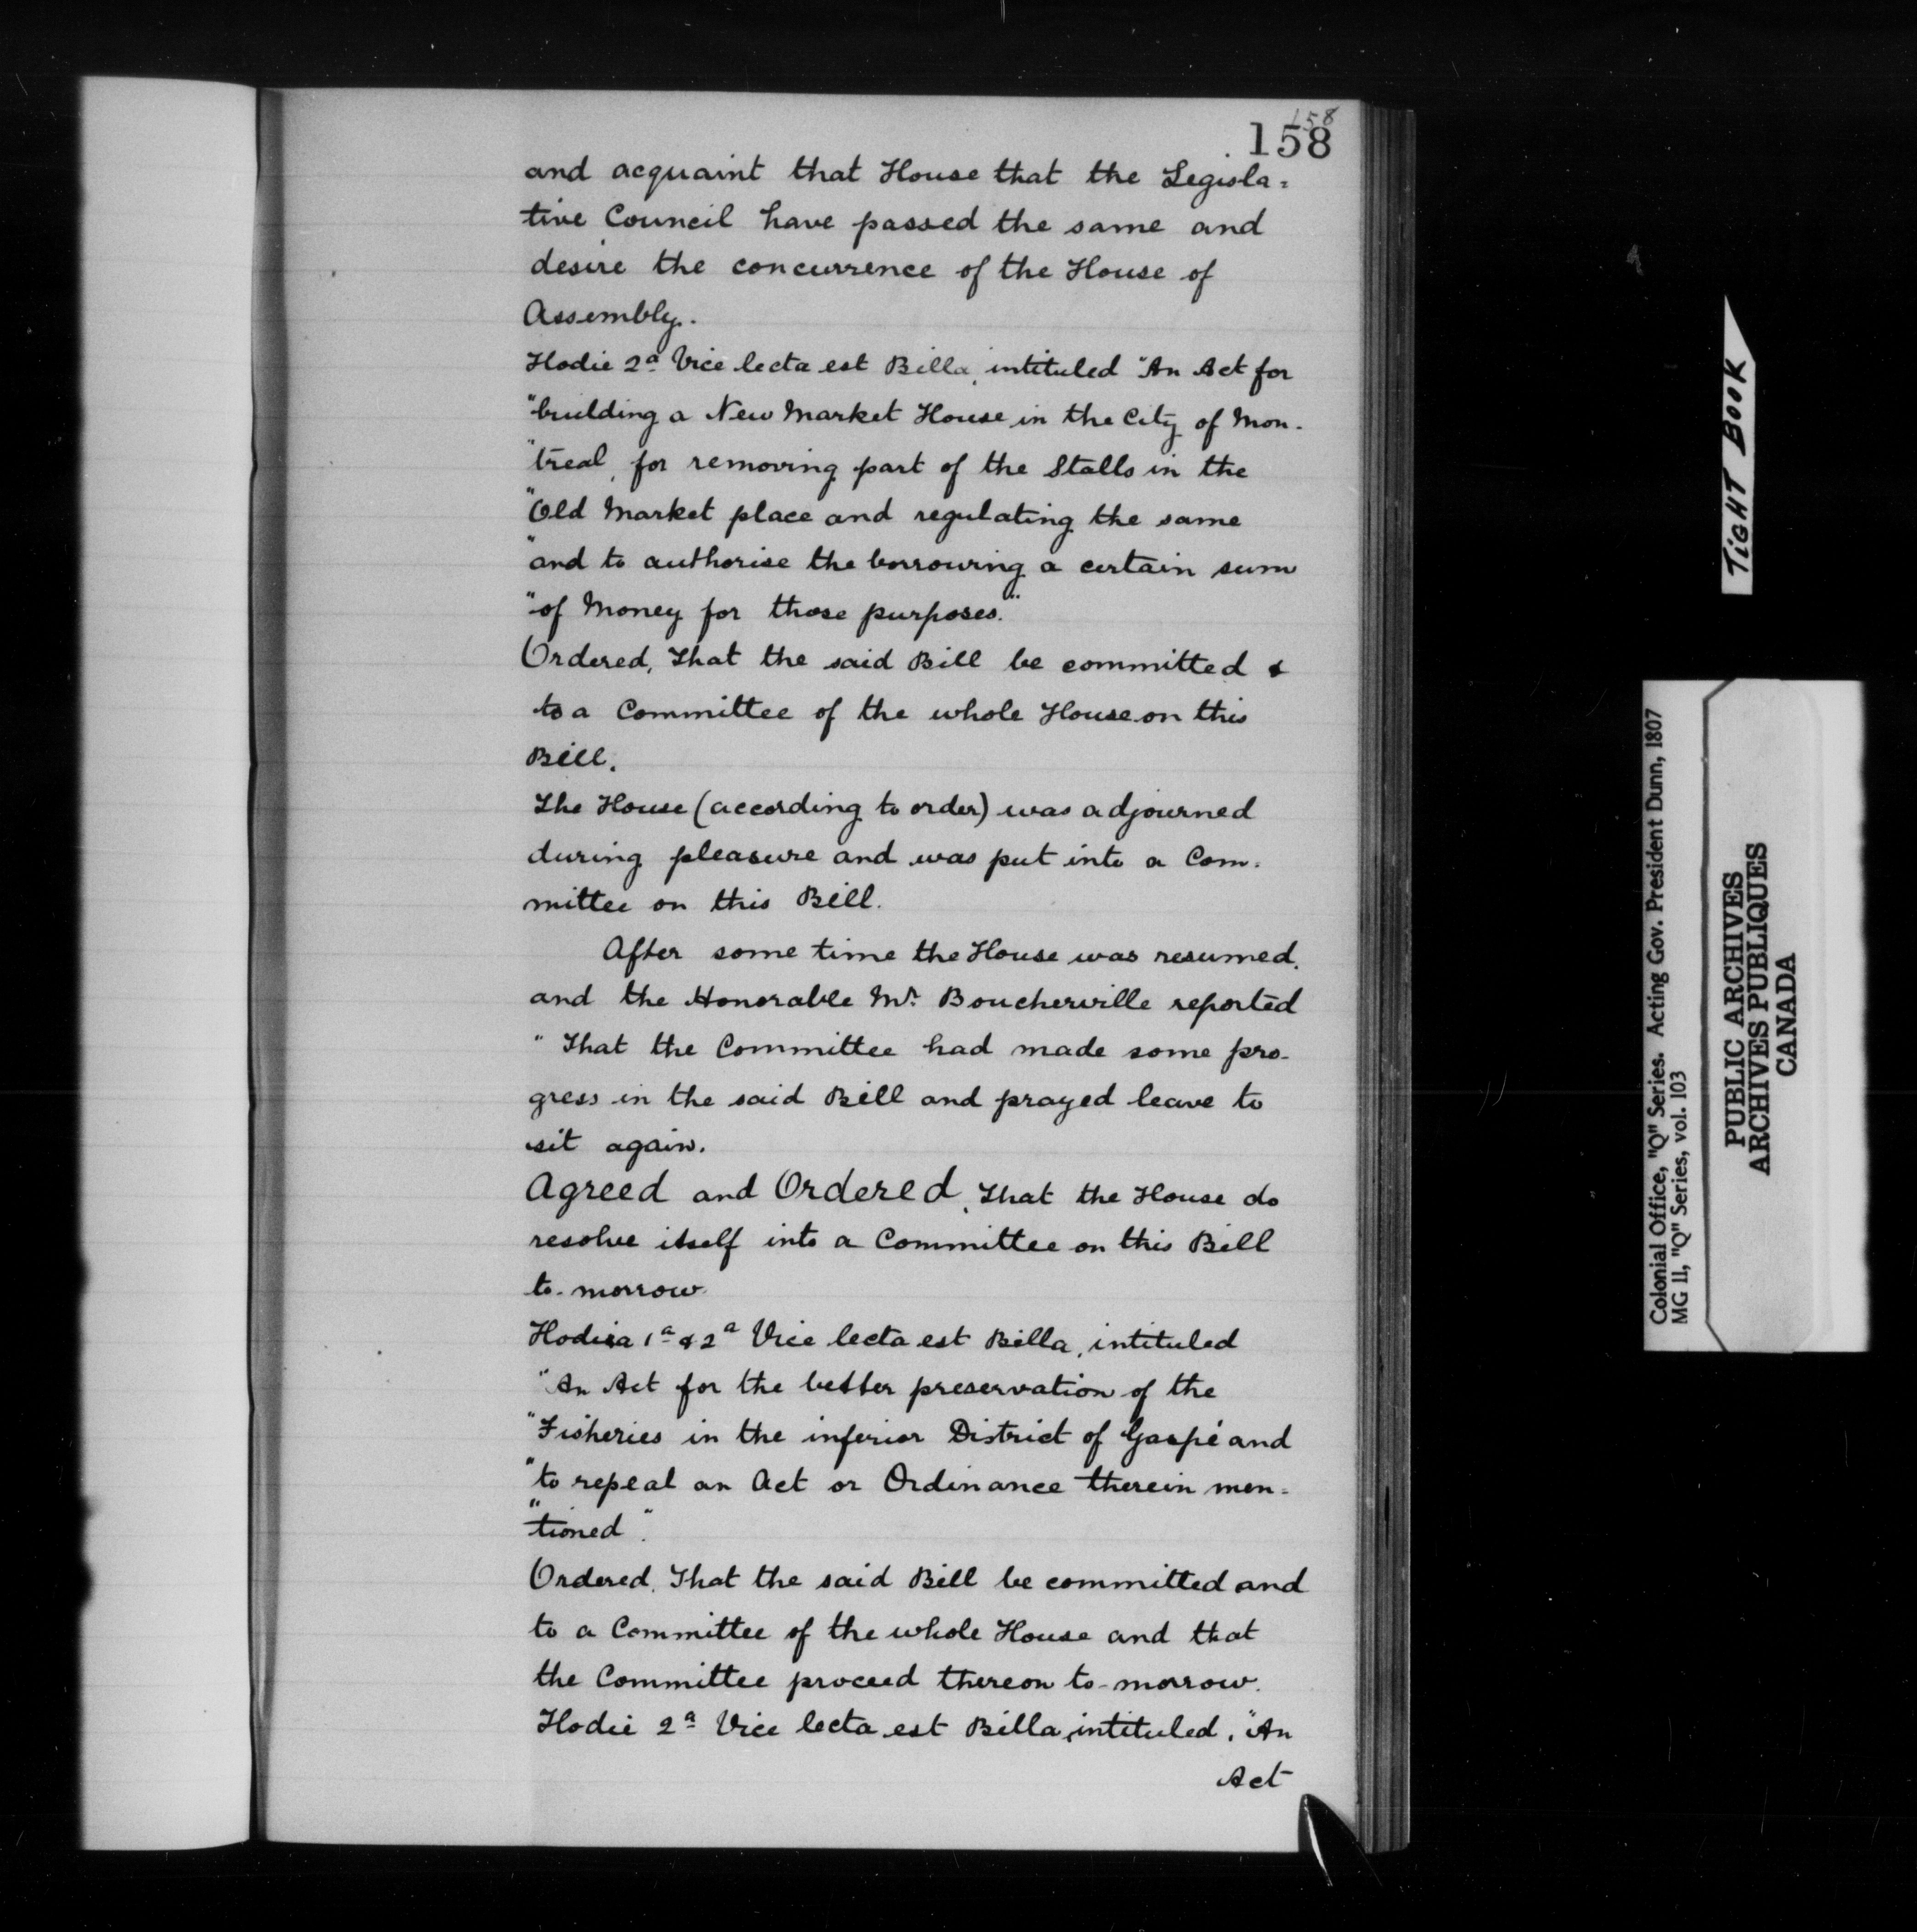 158
158
and acquaint that House that the Legisla=
tive Council have passed the same and
desire the concurrence of the House of
Assembly.
Hodie 2ª Vice lecta est Billa, intituled "An Act for
"building a New Market House in the City of Mon-
"treal, for removing part of the Stalls in the
"Old Market place and regulating the same
"and to authorise the borrowing a certain sum
"of Money for those purposes."
Ordered, That the said Bill be committed &
to a Committee of the whole House on this
Bill.
The House (according to order) was adjourned
during pleasure and was put into a Com-
mittee on this Bill.
After some time the House was resumed,
and the Honorable Mr. Boucherville reported
"That the Committee had made some pro-
gress in the said Bill and prayed leave to
sit again.
Agreed and Ordered, That the House do
resolve itself into a Committee on this Bill
to-morrow.
Hodiea 1ª & 2ª Vice lecta est Billa, intituled
"An Act for the better preservation of the
"Fisheries in the inferior District of Gaspé and
"to repeal an Act or Ordinance therein men=
"tioned".
Ordered, That the said Bill be committed and
to a Committee of the whole House and that
the Committee proceed thereon to-morrow.
Hodie 2ª Vice lecta est Billa, intituled, "An
Act
TIGHT BOOK
Colonial Office, "Q" Series. Acting Gov. President Dunn, 1807
MG 11, "Q" Series, vol. 103
PUBLIC ARCHIVES
ARCHIVES PUBLIQUES
CANADA